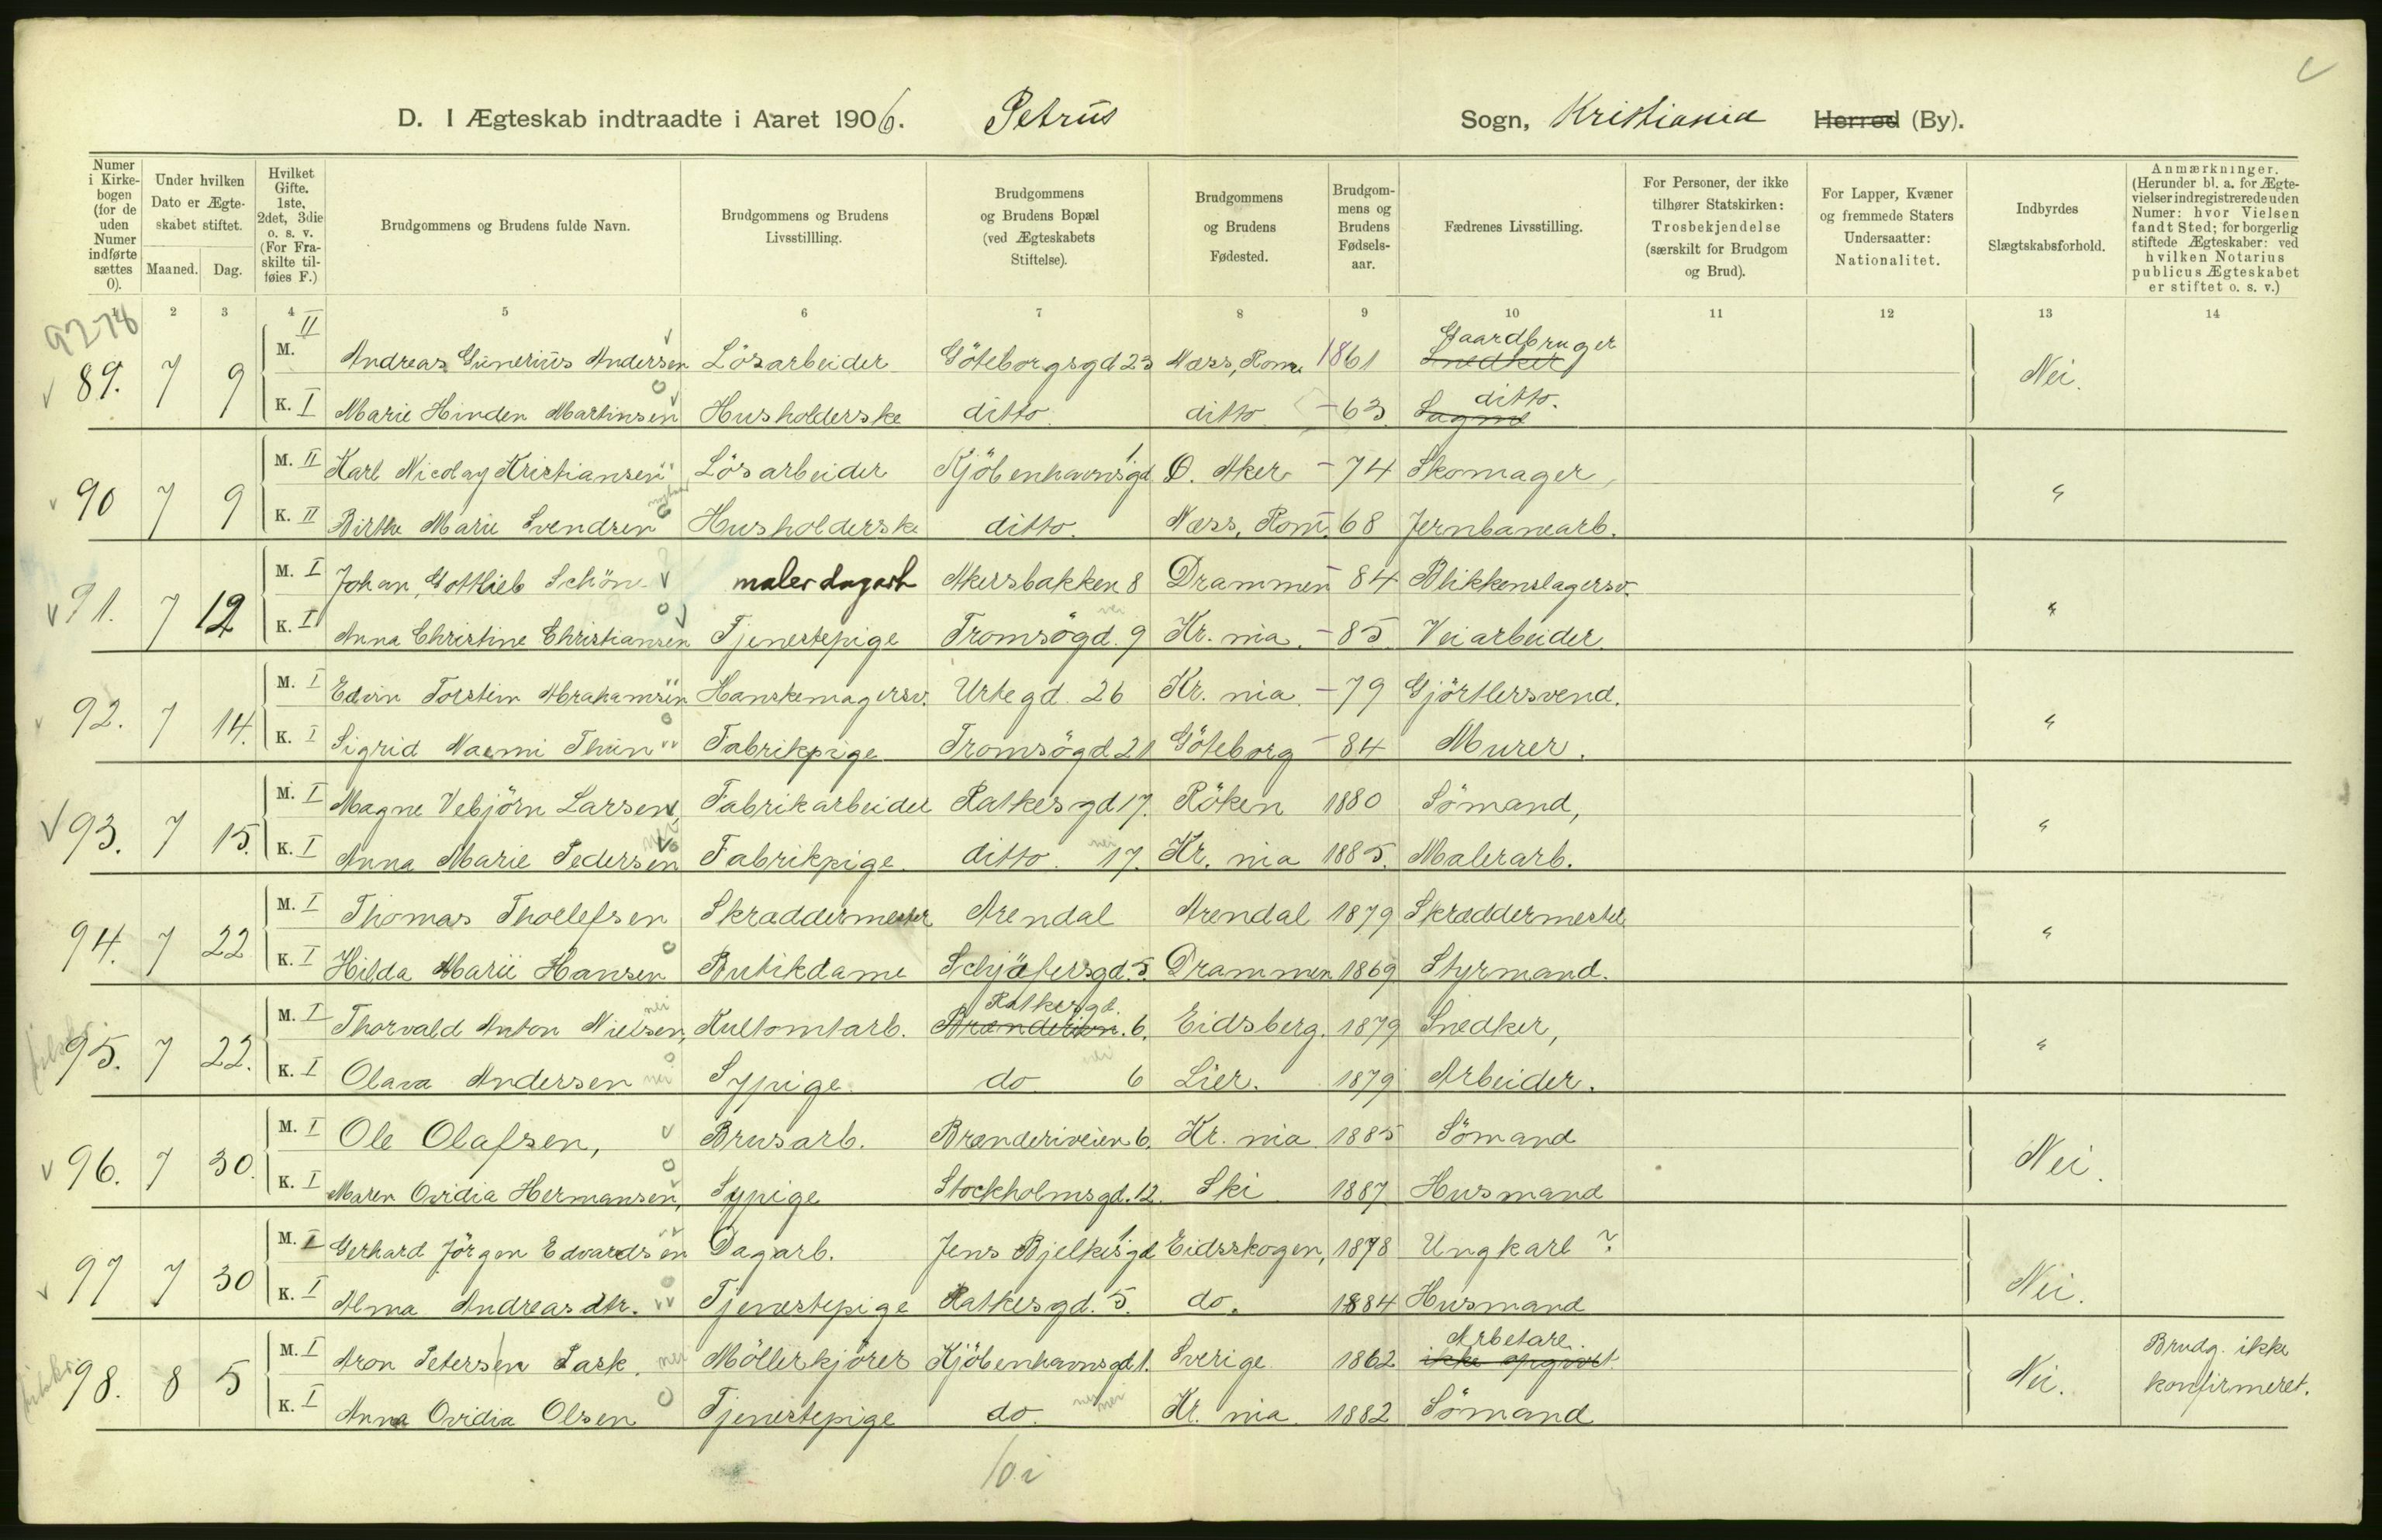 D. I Ægteskab indtraadte i Aaret 1906. Petrus Sogn, Kristiania Herred (By).
Numer i Kirkebogen (for de uden Numer indførte sættes 0).
Under hvilken Dato er Ægteskabet stiftet.
Maaned. Dag.
Hvilket Gifte. 1ste, 2det, 3die o. s. v. (For Fraskilte tilføies F.)
Brudgommens og Brudens fulde Navn.
Brudgommens og Brudens Livsstillling.
Brudgommens og Brudens Bopæl (ved Ægteskabets Stiftelse).
Brudgommens og Brudens Fødested.
Brudgommens og Brudens Fødselsaar.
Fædrenes Livsstilling.
For Personer, der ikke tilhører Statskirken: Trosbekjendelse (særskilt for Brudgom og Brud).
For Lapper, Kvæner og fremmede Staters Undersaatter: Nationalitet.
Indbyrdes Slægtskabsforhold.
Anmærkninger. (Herunder bl. a. for Ægtevielser indregistrerede uden Numer: hvor Vielsen fandt Sted; for borgerlig stiftede Ægteskaber: ved hvilken Notarius publicus Ægteskabet er stiftet o. s. v.)
1 2 3 4 5 6 7 8 9 10 11 12 13 14
89. 7 9 M. II Andreas Gunerius Andersen Lösarbeider Göteborgsgd 23 Næss, Rom. 1861 Snedker Gaardbruger Nei.
K. I Marie Hinden Martinsen Husholderske ditto ditto - 63. ditto.
90 7 9 M. II Karl Nicolay Kristiansen Lösarbeider Kjöbenhavnsgd 1 Ö. Aker - 74 Skomager, "
K. II Birthe Marie Svendsen Husholderske ditto. Næss, Rom. - 68 Jernbanearb.
91. 7 12 M. I Johan, Gottlieb Schön maler dagarb Akersbakken 8 Drammen - 84 Blikkenslagersv. "
K. I Anna Christine Christiansen Tjenestepige Tromsögd. 9 Kr. nia. - 85. Veiarbeider.
92. 7 14. M. I Edvin Torstein Abrahamsen Hanskemagersv. Urtegd. 26 Kr. nia. - 79 Gjörtlersvend. "
K. I Sigrid Naemi Thun Fabrikpige Tromsögd 21 Göteborg - 84 Murer.
93. 7 15. M. I Magne Vebjörn Larsen, Fabrikarbeider Ratkesgd 17. Röken 1880 Sömand, "
K. I Anna Marie Pedersen Fabrikpige. ditto. 17. Kr. nia 1885. Malerarb.
94. 7 22 M. I Thomas Thollefsen Skræddermester Arendal Arendal 1879 Skræddermester "
K. I Hilda Marie Hansen Butikdame Schjøfersgd. 5. Drammen 1869 Styrmand.
95. 7 22. M. I Thorvald Anton Nielsen, Kultomtarb. Brænderiven. Ratkesgd. 6. Eidsberg. 1879 Snedker, "
K. I Olava Andersen Sypige. do 6 Lier. 1879 Arbeider.
96. 7 30. M. I Ole Olafsen, Brusarb. Brænderiveien 6, Kr. nia 1885 Sömand Nei.
K. I Maren Ovidia Hermansen, Sypige Stockholmsgd. 12. Ski 1887 Husmand
97 7 30 M. I Gerhard Jörgen Edvardsen Dagarb. Jens Bjelkesgd 1 Eidsskogen, 1878 Ungkarl ? Nei.
K. I Alma Andreasdtr. Tjenestepige Ratkesgd. 5. do. 1884 Husmand
98. 8 5 M. I Aron Petersen Lark. Möllerkjörer Kjöbenhavnsgd 1. Sverige 1862 ikke opgivet. Arbetare. Nei. Brudg. ikke konfirmeret.
K. I Anna Ovidia Olsen Tjenestepige do. Kr. nia. 1882 Sömand